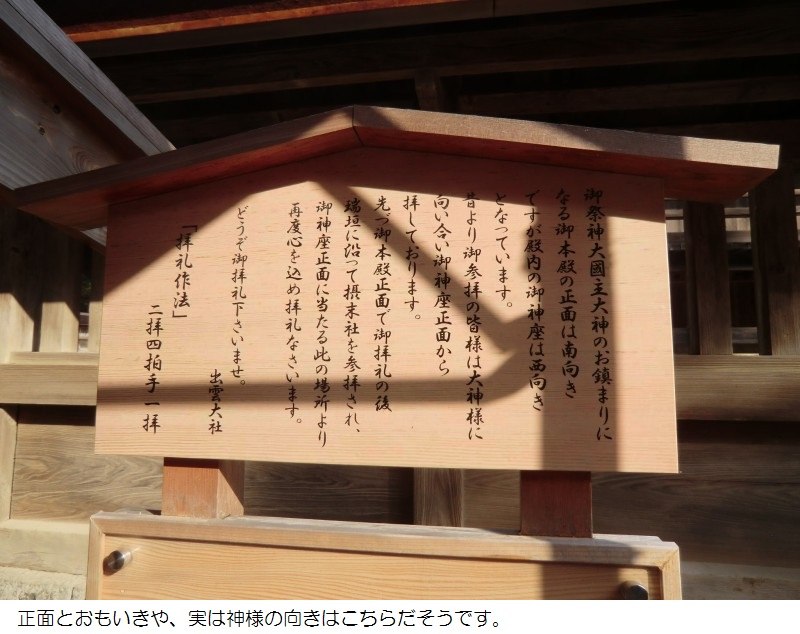 御祭神大國主大神のお鎮まりに
なる御本殿の正面は南向き
ですが殿内の御神座は西向き
となっています。
昔より御参拝の皆様は大神様に
向い合い御神座正面から
拝しております。
先づ御本殿正面で御拝礼の後
瑞垣に沿って摂末社を参拝され、
御神座正面に当たる此の場所より
再度心を込め拝礼なさいます。
どうぞ御拝礼下さいませ。
出雲大社
「拝礼作法」
二拝四拍手一拝
正面とおもいきや、実は神様の向きはこちらだそうです。